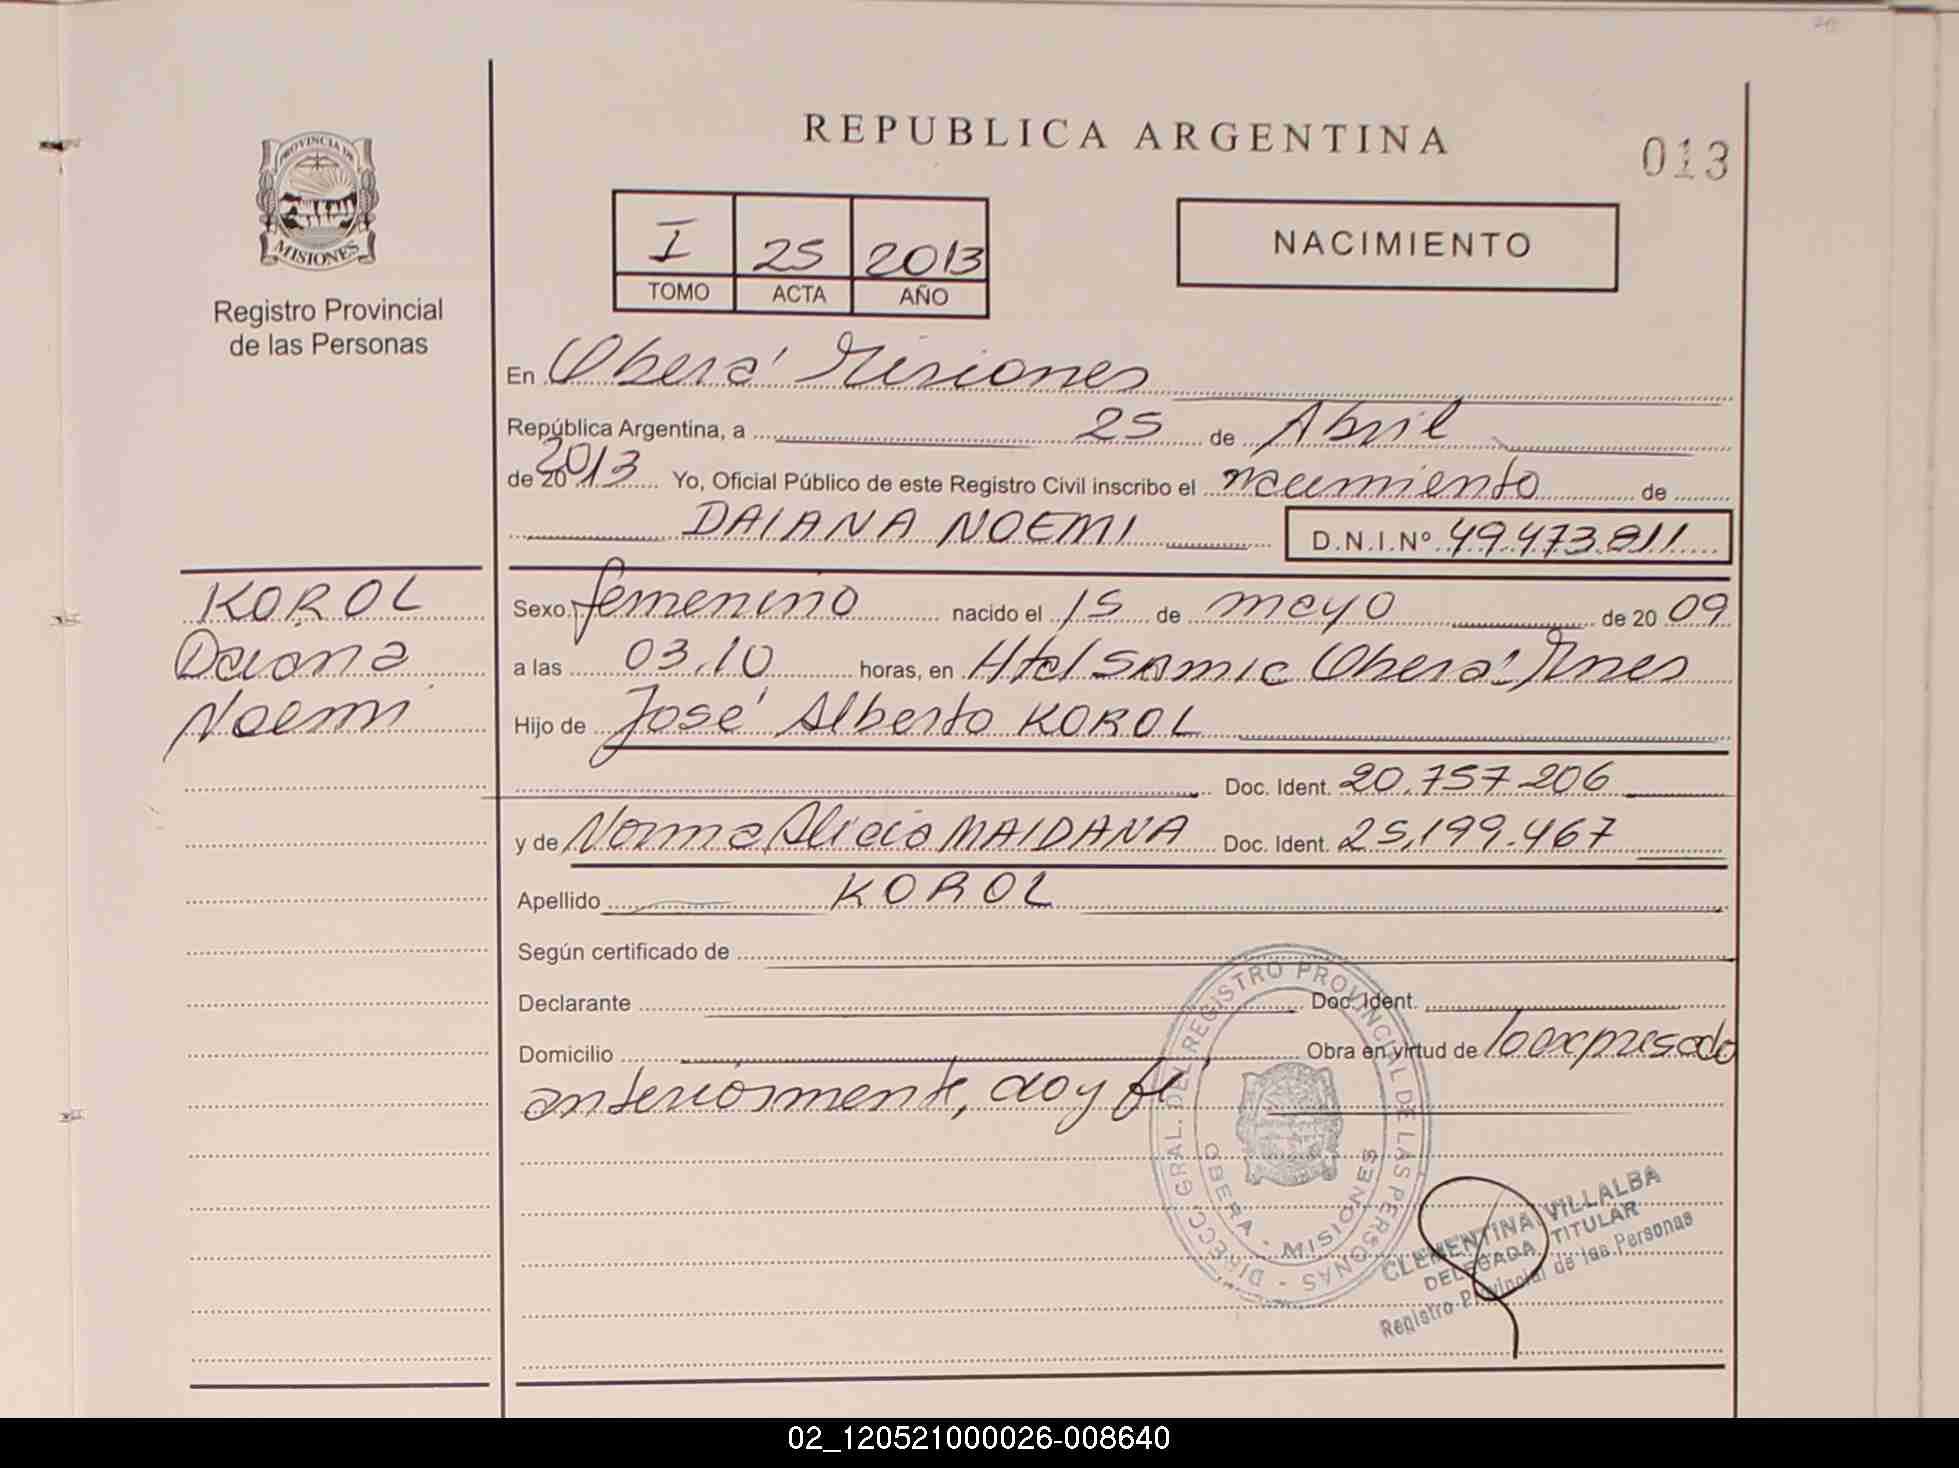 REPUBLICA ARGENTINA
013
PROVINCIA DE
MISIONES
Registro Provincial
de las Personas
I 25 2013
TOMO ACTA AÑO
NACIMIENTO
En Oberá Misiones
República Argentina, a 25 de Abril
de 20 2013 Yo, Oficial Público de este Registro Civil inscribo el nacimiento de
DAIANA NOEMI D.N.I.Nº 49.473.811
KOROL
Daiana
Noemi
Sexo femenino nacido el 15 de mayo de 20 09
a las 03.10 horas, en Htal SAMIC Oberá Mnes
Hijo de José Alberto KOROL
Doc. Ident. 20.757.206
y de Norma Alicia MAIDANA Doc. Ident. 25.199.467
Apellido KOROL
Según certificado de
Declarante Doc. Ident.
Domicilio Obra en virtud de lo expresado
anteriormente, doy fé
DIRECC. GRAL. DEL REGISTRO PROVINCIAL DE LAS PERSONAS -
OBERA - MISIONES
CLEMENTINA VILLALBA
DELEGADA TITULAR
Registro Provincial de las Personas
02_120521000026-008640